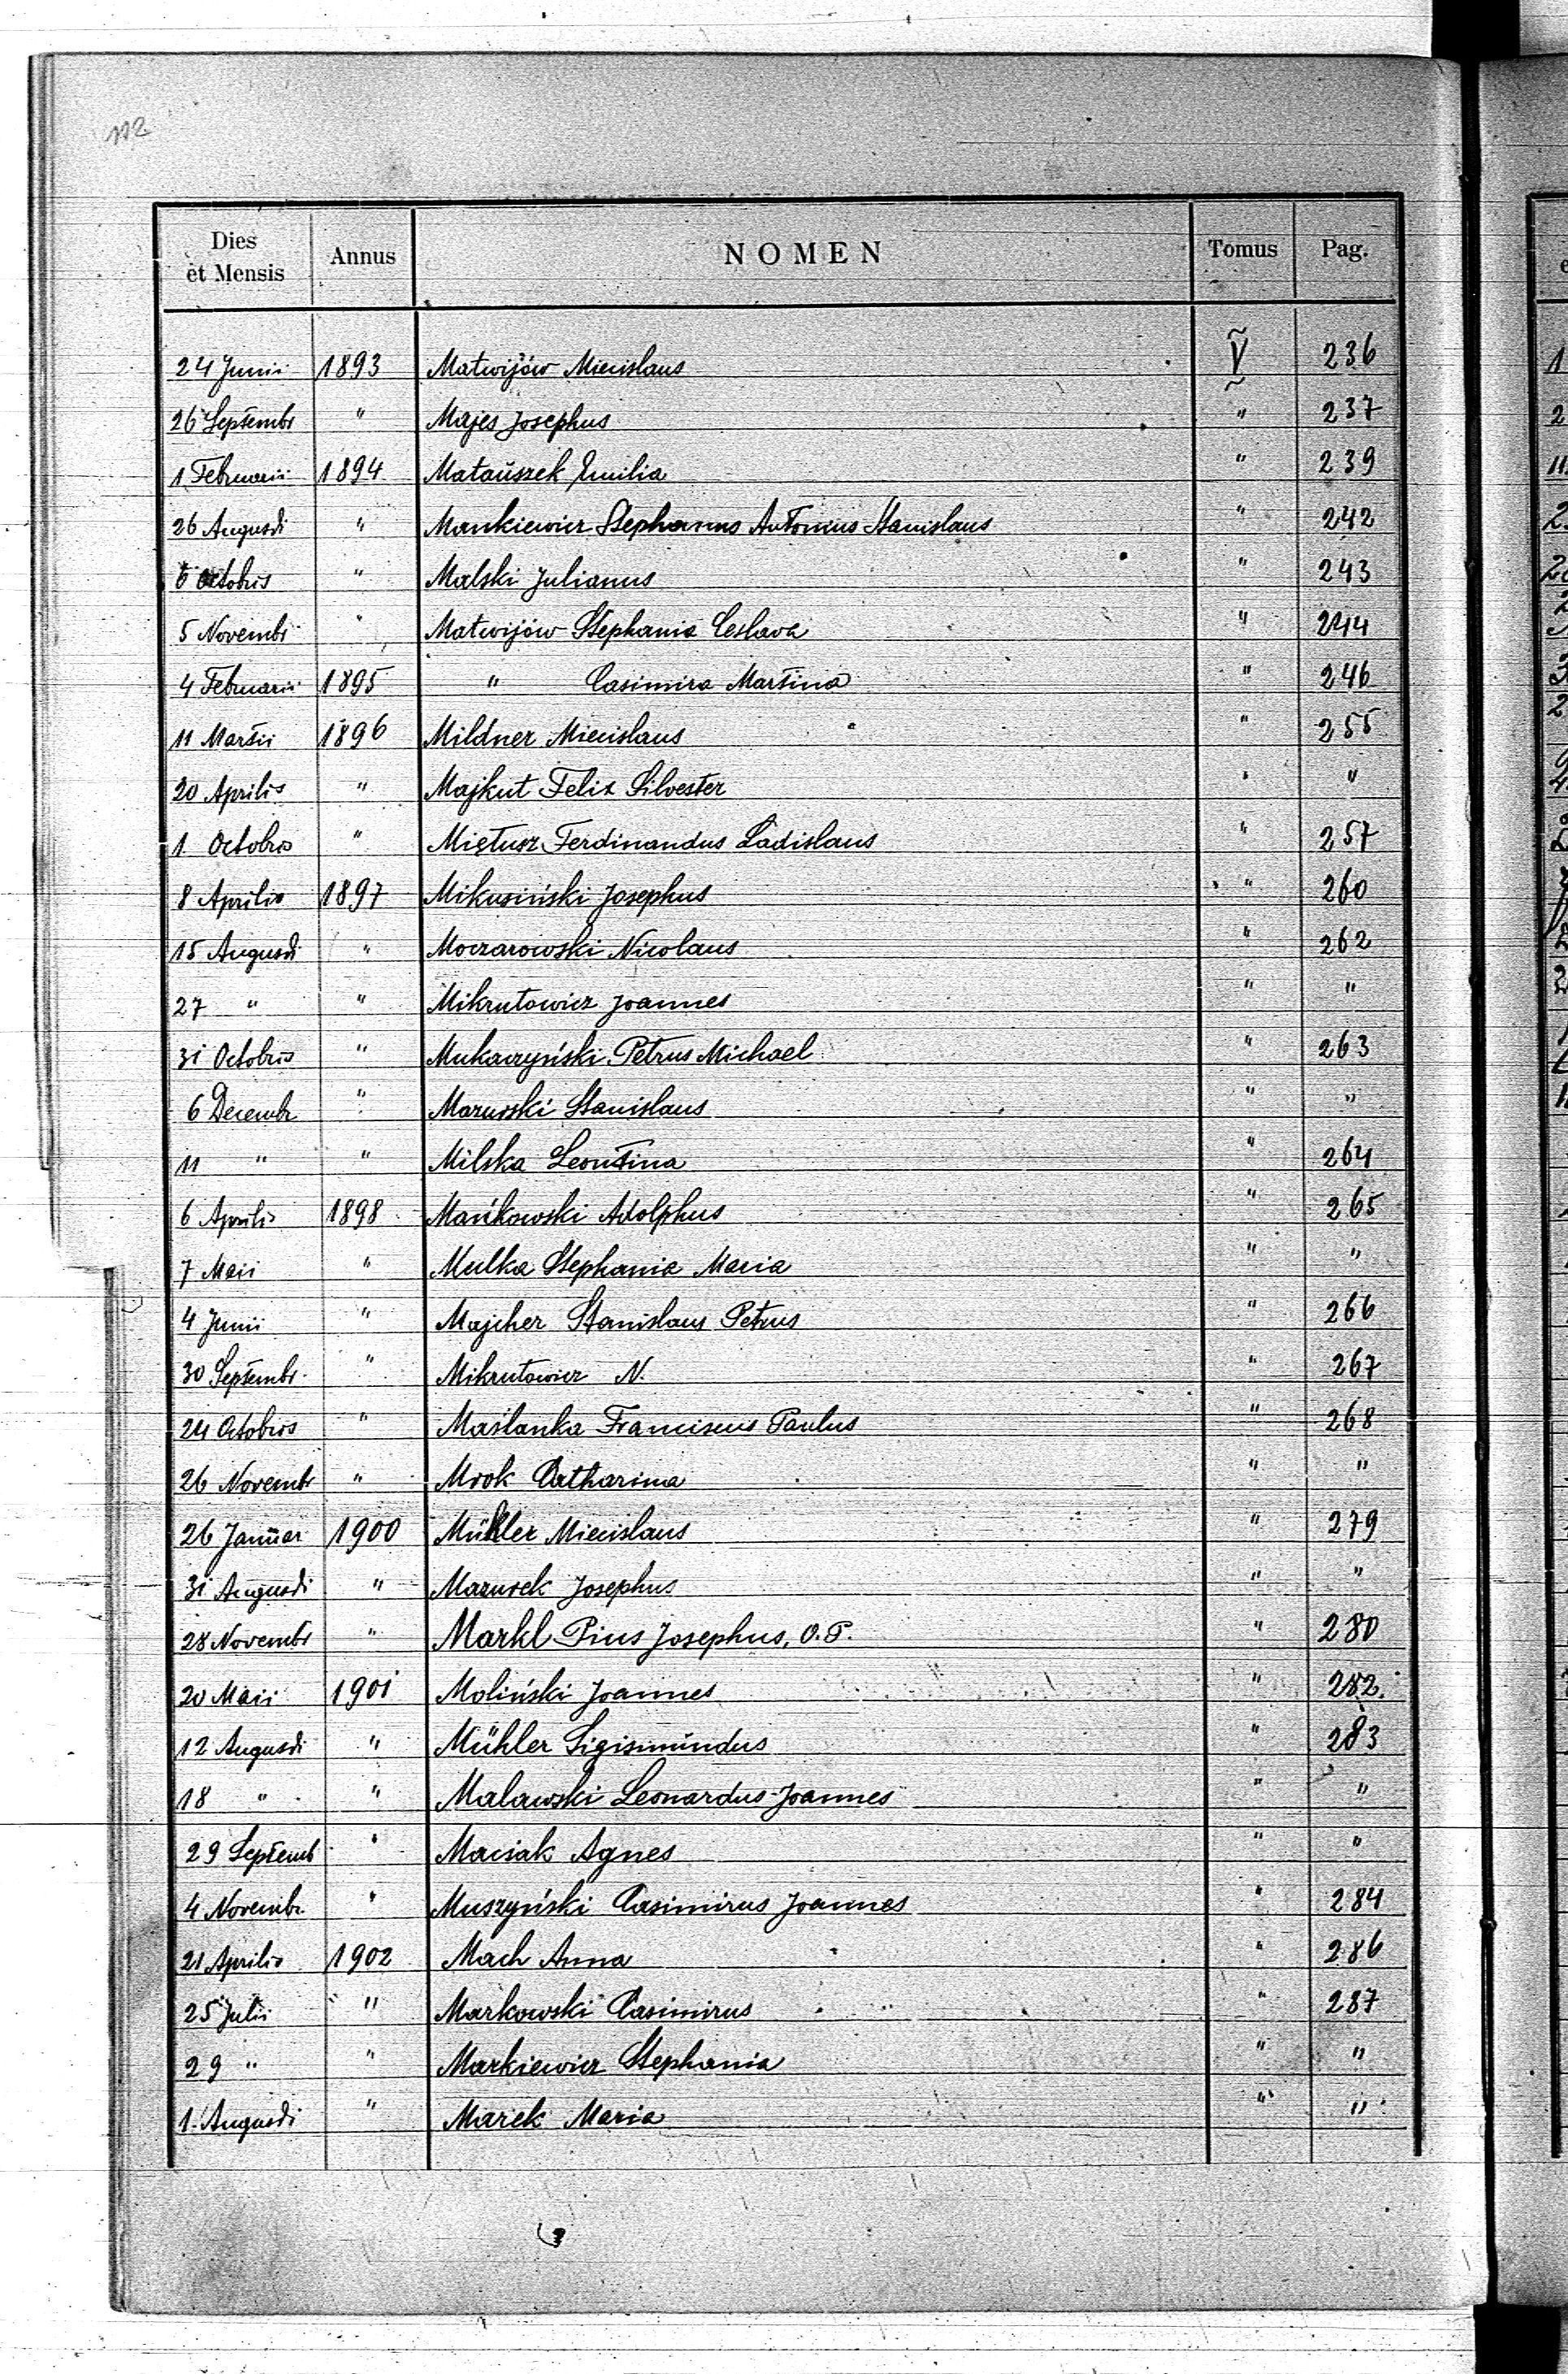 112
Dies et Mensis Annus NOMEN Tomus Pag.
24 Junii 1893 Matwijów Miecislaus V 236
26 Septembr " Majes Josephus " 237
1 Februarii 1894 Mataŭszek Emilia " 239
26 Augusti " Mankiewicz Stephanus Antonius Stanislaus " 242
6 Octobris " Malski Julianus " 243
5 Novembr " Matwijów Stephania Ceslava " 244
4 Februarii 1895 " Casimira Martina " 246
11 Martii 1896 Mildner Miecislaus " 255
20 Aprilis " Majkut Felix Silvester " "
1 Octobris " Miętusz Ferdinandus Ladislaus " 257
8 Aprilis 1897 Mikusiński Josephus " 260
15 Augusti " Moczarowski Nicolaus " 262
27 " " Mikrutowicz Joannes " "
31 Octobris " Mukaczyński Petrus Michael " 263
6 Decembr " Mazurski Stanislaus " "
11 " " Milska Leontina " 264
6 Aprilis 1898 Mańkowski Adolphus " 265
7 Maii " Mulka Stephania Maria " "
4 Junii " Majcher Stanislaus Petrus " 266
30 Septembr. " Mikrutowicz N. " 267
24 Octobris " Maślanka Franciscus Paulus " 268
26 Novembr " Mrok Catharina " "
26 Januar 1900 Mühler Miecislaus " 279
31 Augusti " Mazurek Josephus " "
28 Novembr " Markl Pius Josephus, O.P. " 280
20 Maii 1901 Moliński Joannes " 282.
12 Augusti " Mühler Sigismŭndus " 283
18 " " Malawski Leonardus-Joannes " "
29 Septemb " Maciak Agnes " "
4 Novembr. " Muszyński Casimirus Joannes " 284
21 Aprilis 1902 Mach Anna " 286
25 Julii " Markowski Casimirus " 287
29 " " Markiewicz Stephania " "
1. Augusti " Marek Maria " "